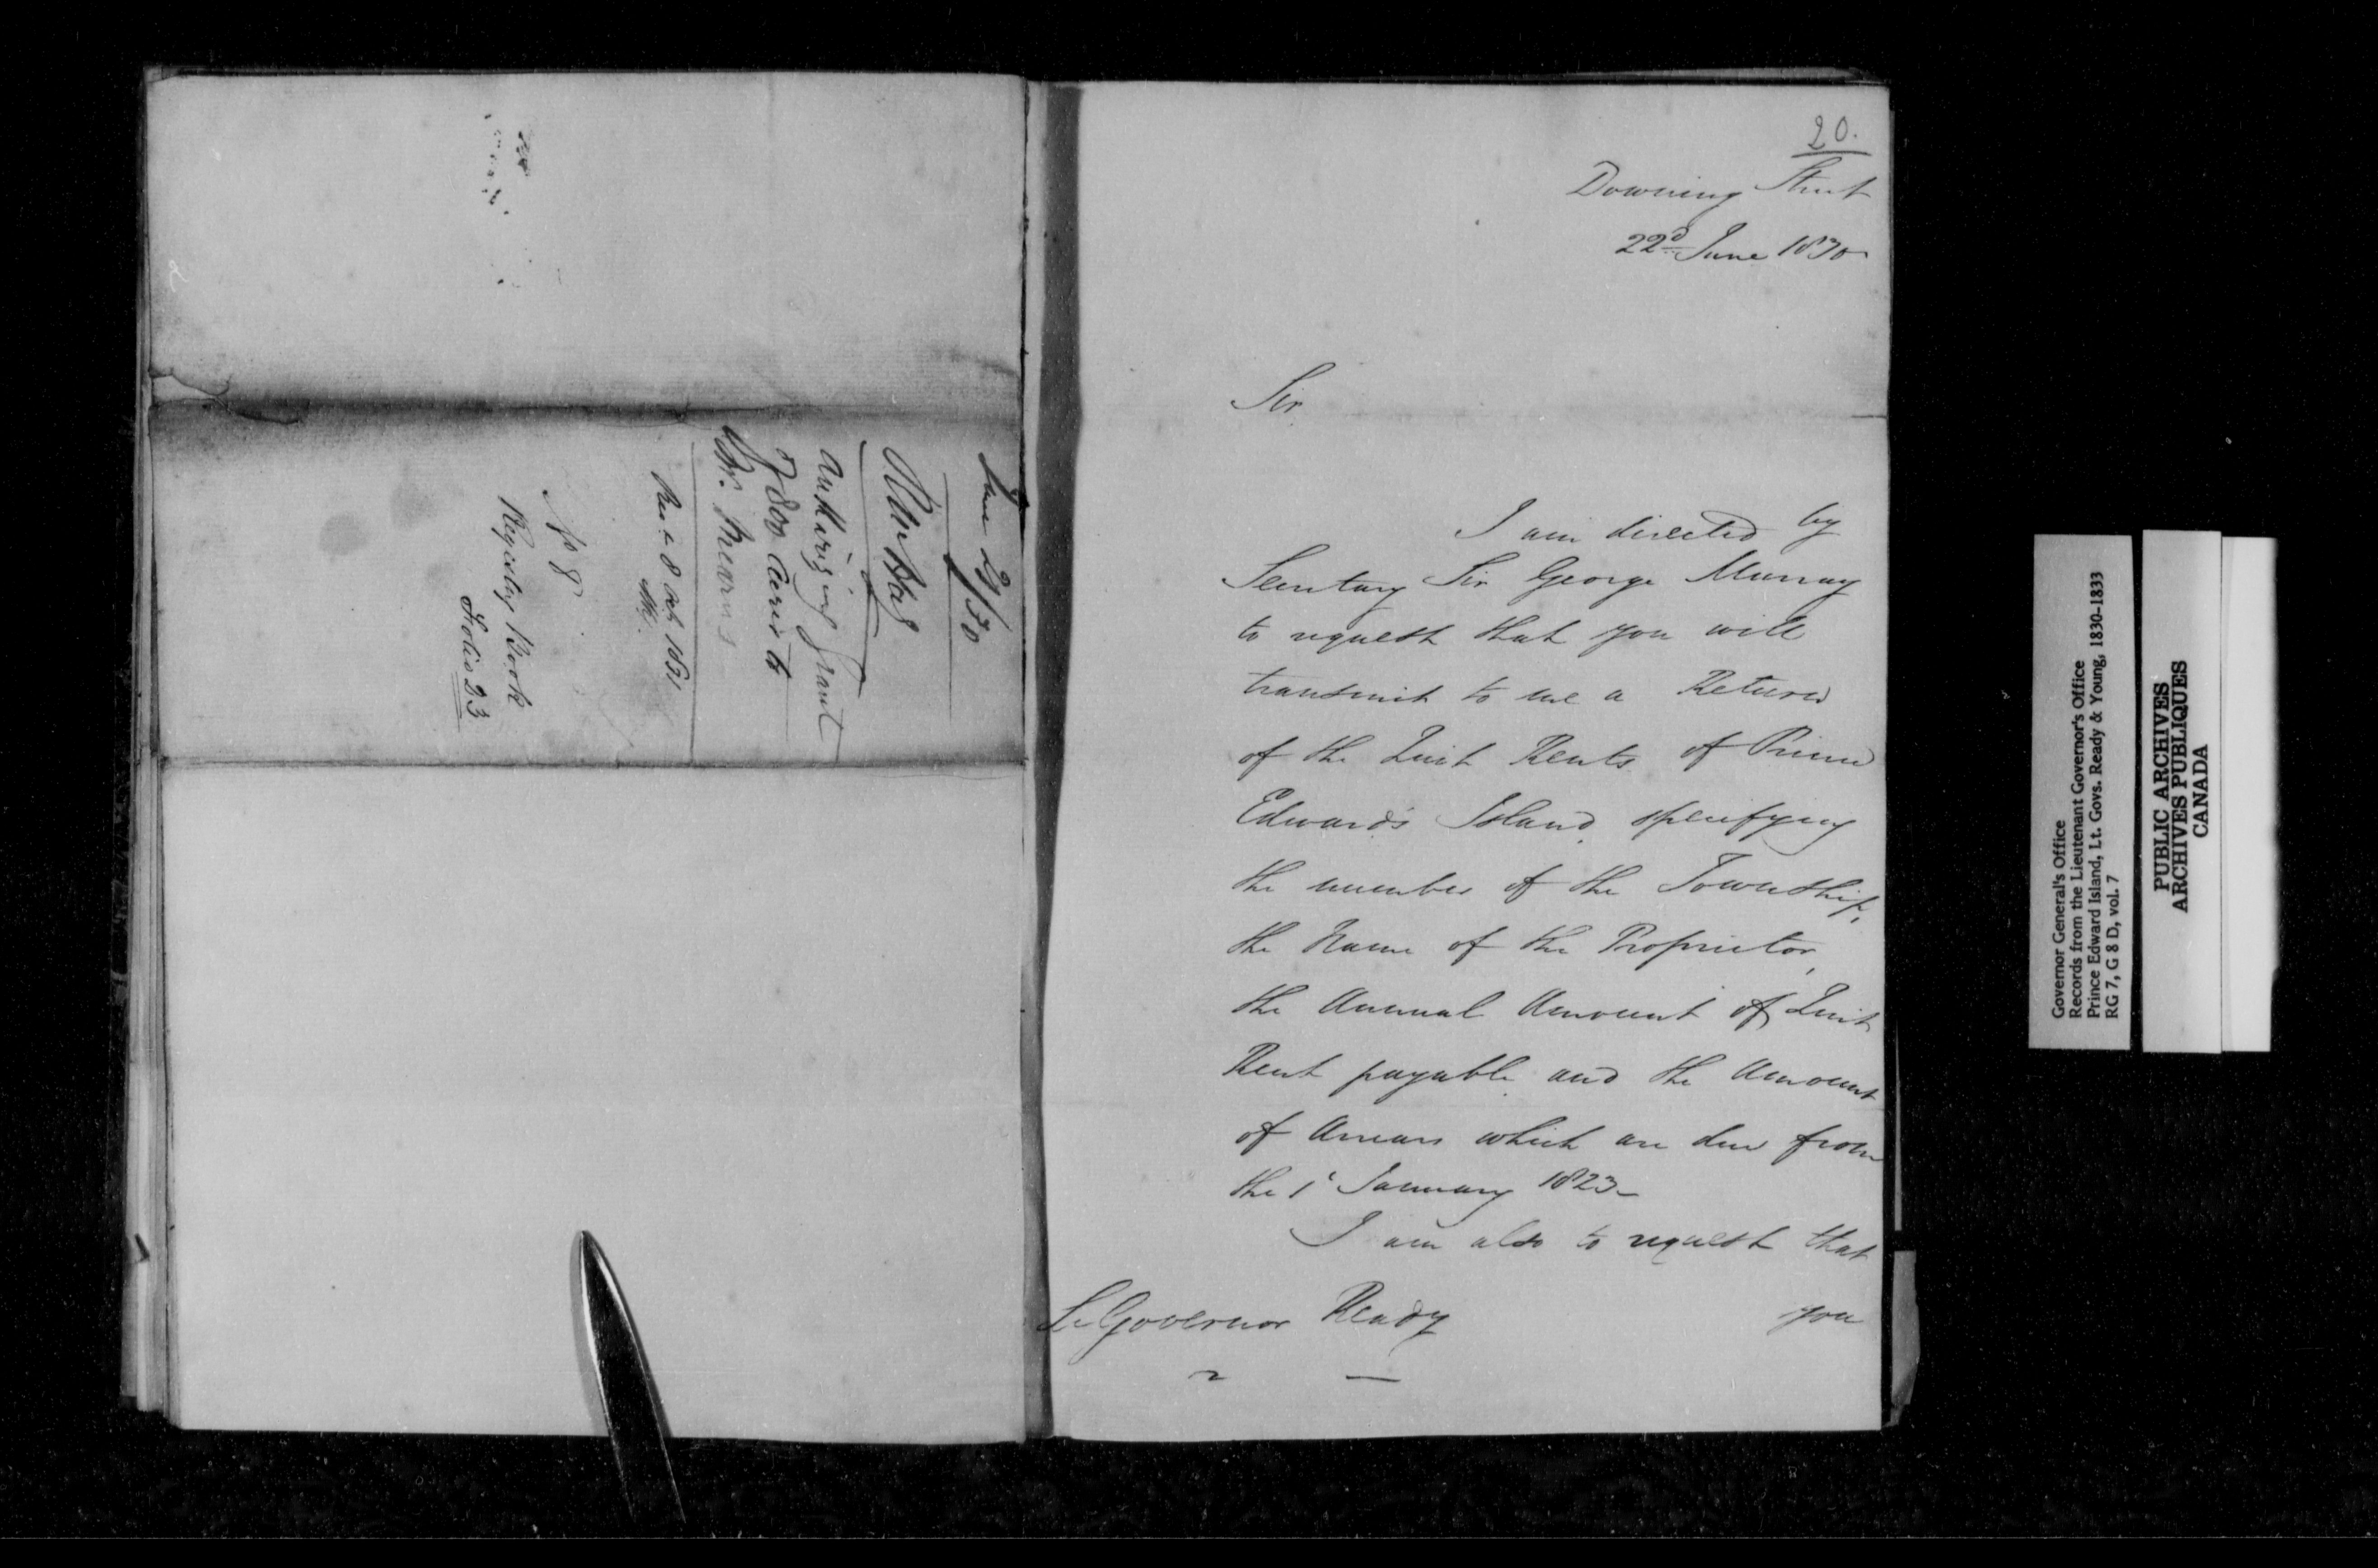 June 2/30
authorizing grant
of 800 acres to
Mr. Mearns
8 Oct 1831
No 8
Registry Book
Folio 23
20.
Downing Street
22d June 1830
Sir
I am directed by
Secretary Sir George Murray
to request that you will
transmit to me a Return
of the Quit Rents of Prince
Edward's Island, specifying
the number of the Township,
the Name of the Proprietor,
the Annual Amount of Quit
Rent payable and the Amount
of Arrears which are due from
the 1t January 1823—
I am also to request that
you
Lt Governor Ready
Governor General's Office
Records from the Lieutenant Governor's Office
Prince Edward Island, Lt. Govs. Ready & Young, 1830-1833
RG 7, G 8 D, vol. 7
PUBLIC ARCHIVES
ARCHIVES PUBLIQUES
CANADA